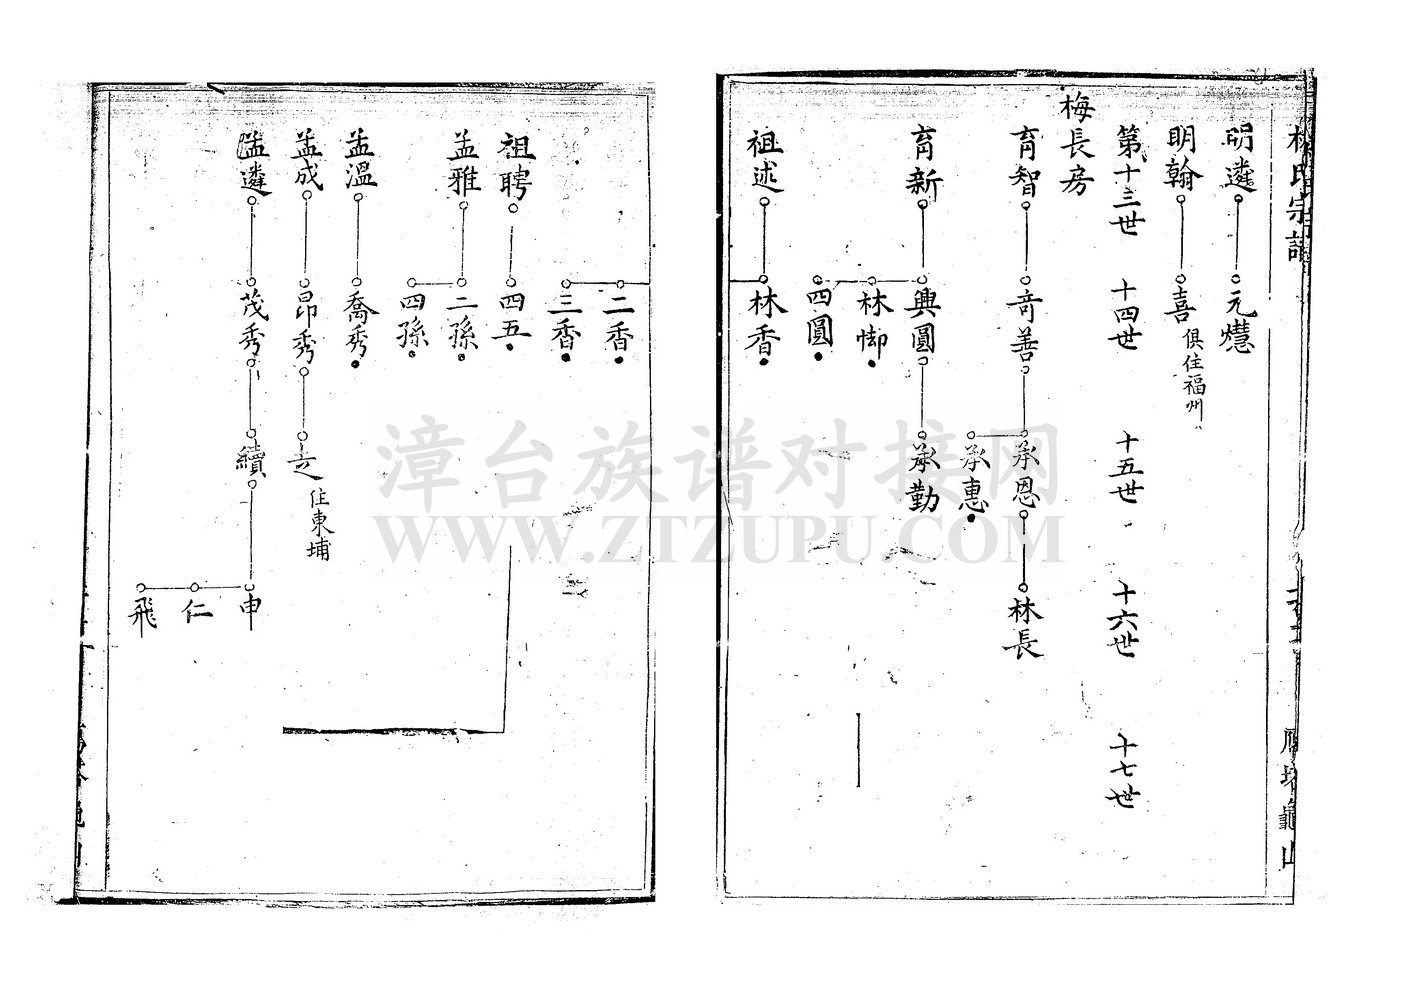 林氏宗譜
明遴 元㷻
明翰 喜 俱住福州
第十三世 十四世 十五世 十六世 十七世
梅長房
育智 奇善 承恩 林長
承惠
育新 興圓 承勤
林𢃄
四圓
祖述 林香
二香
三香
祖聘 四五
孟雅 二孫
四孫
孟溫 喬秀
孟成 昂秀 立 住東埔
孟遴 茂秀 續 申
仁
飛
龜山
漳台族谱对接网
WWW.ZTZUPU.COM